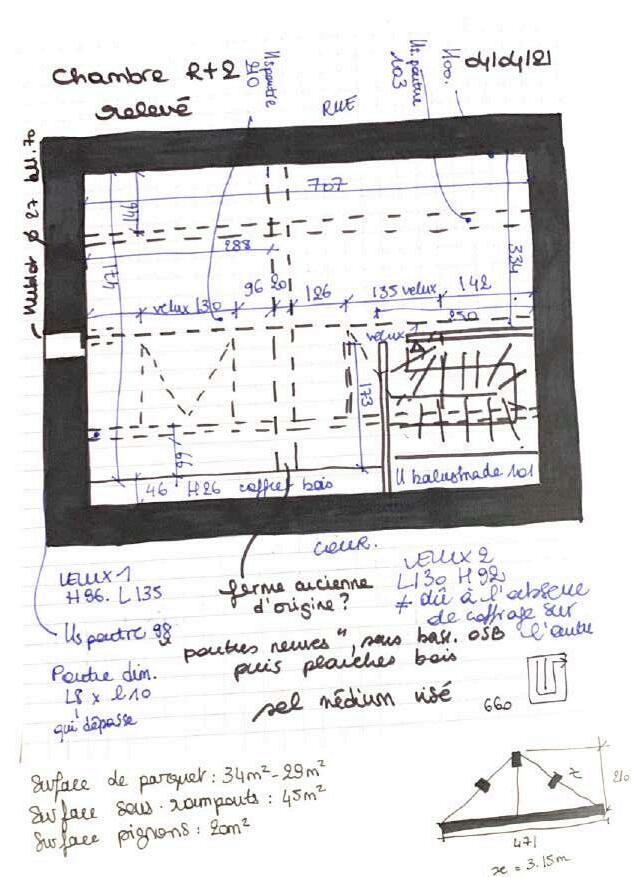 Chambre R+2
relevé
Us poutre
210
RUE
Us. poutre
103
100.
04/04/21
Hublot ø 27 hll. 70
707
144
471
288
334
velux 130
96
20
126
135 velux
142
250
velux
173
66
46
H26
coffret bois
U balustrade 101
COUR.
VELUX 1
H96. L135
ferme ancienne
d'origine?
VELUX 2
L130 H92
≠ dû à l'absence
de coffrage sur
l'autre
Us poutre 98
"poutres neuves", sous bast. OSB
puis planches bois
Poutre dim.
L8 x l10
qui dépasse
sol médium vissé
660
Surface de parquet : 34m² - 29m²
Surface sous-rampants : 45m²
Surface pignons : 20m²
x
210
471
x = 3.15m